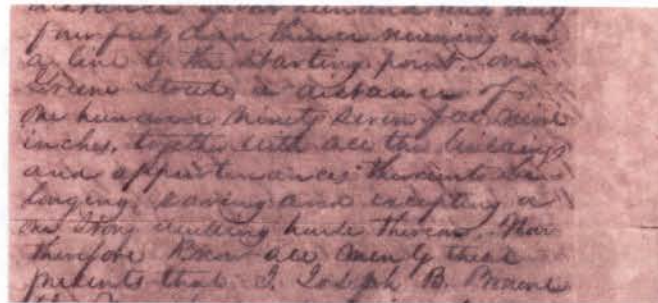 four feet, and thence running in
a line to the starting point on
Greene Street, a distance of
one hundred ninety seven feet nine
inches, together with all the buildings
and appurtenances thereunto be
longing, saving and excepting a
one story building built thereon, Now
therefore Know all men by these
presents that I Joseph B. Browne